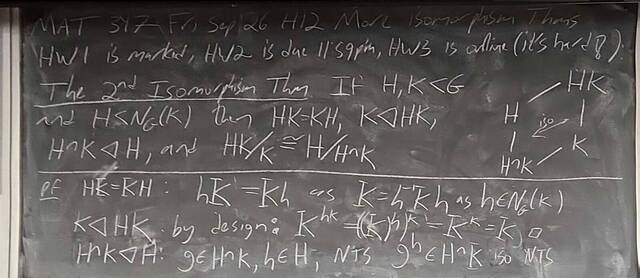 MAT 347 Fri Sep 26 H12 More Isomorphism Thms
HW1 is marked, HW2 is due 11:59pm, HW3 is online (it's hard!).
The 2nd Isomorphism Thm If H,K<G
and H≤N_G(K) then HK=KH, K◁HK,
H∩K◁H, and HK/K ≅ H/H∩K
HK
H
iso
K
H∩K
pf HK=KH : hK=Kh as K=h⁻¹Kh as h∈N_G(K)
K◁HK by design: K^{hk}=(K^h)^k=K^k=K □
H∩K◁H: g∈H∩K, h∈H, NTS g^h∈H∩K iso NTS